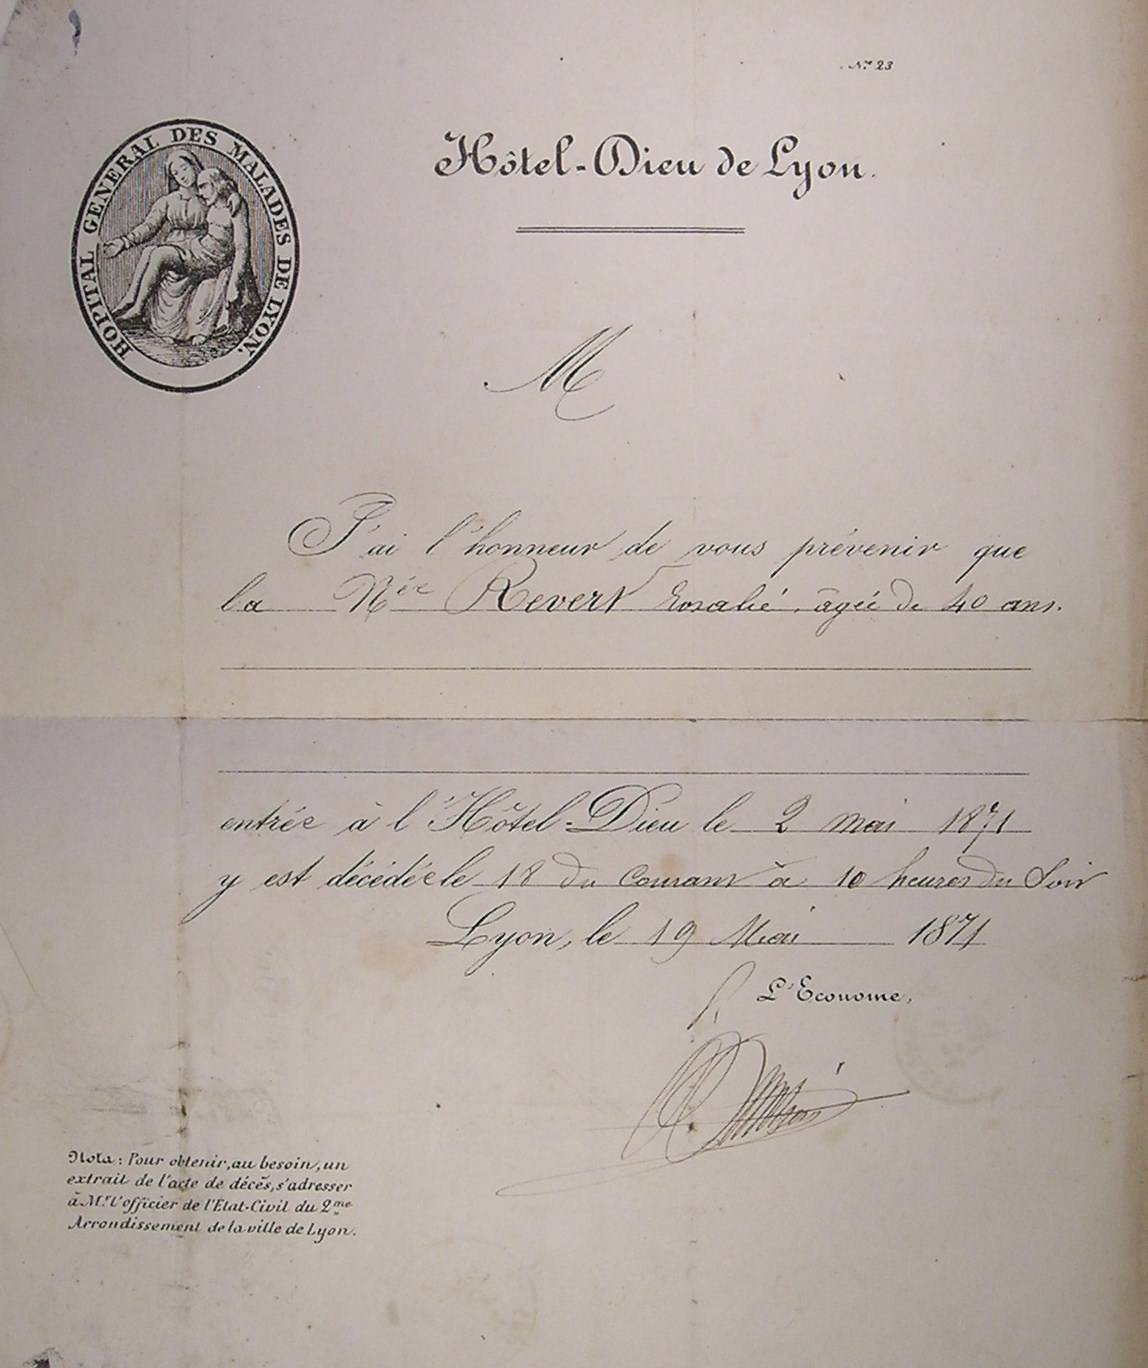 Nº 23
HOPITAL GENERAL DES MALADES DE LYON.
Hôtel-Dieu de Lyon.
M
J'ai l'honneur de vous prévenir que
la Née Revert Rosalie, âgée de 40 ans.
entrée à l'Hôtel-Dieu le 2 mai 1871
y est décédée le 18 du courant à 10 heures du Soir
Lyon, le 19 Mai 1871
P. L'Econome,
Nota: Pour obtenir, au besoin, un
extrait de l'acte de décès, s'adresser
à Mr l'officier de l'Etat-Civil du 2me
Arrondissement de la ville de Lyon.